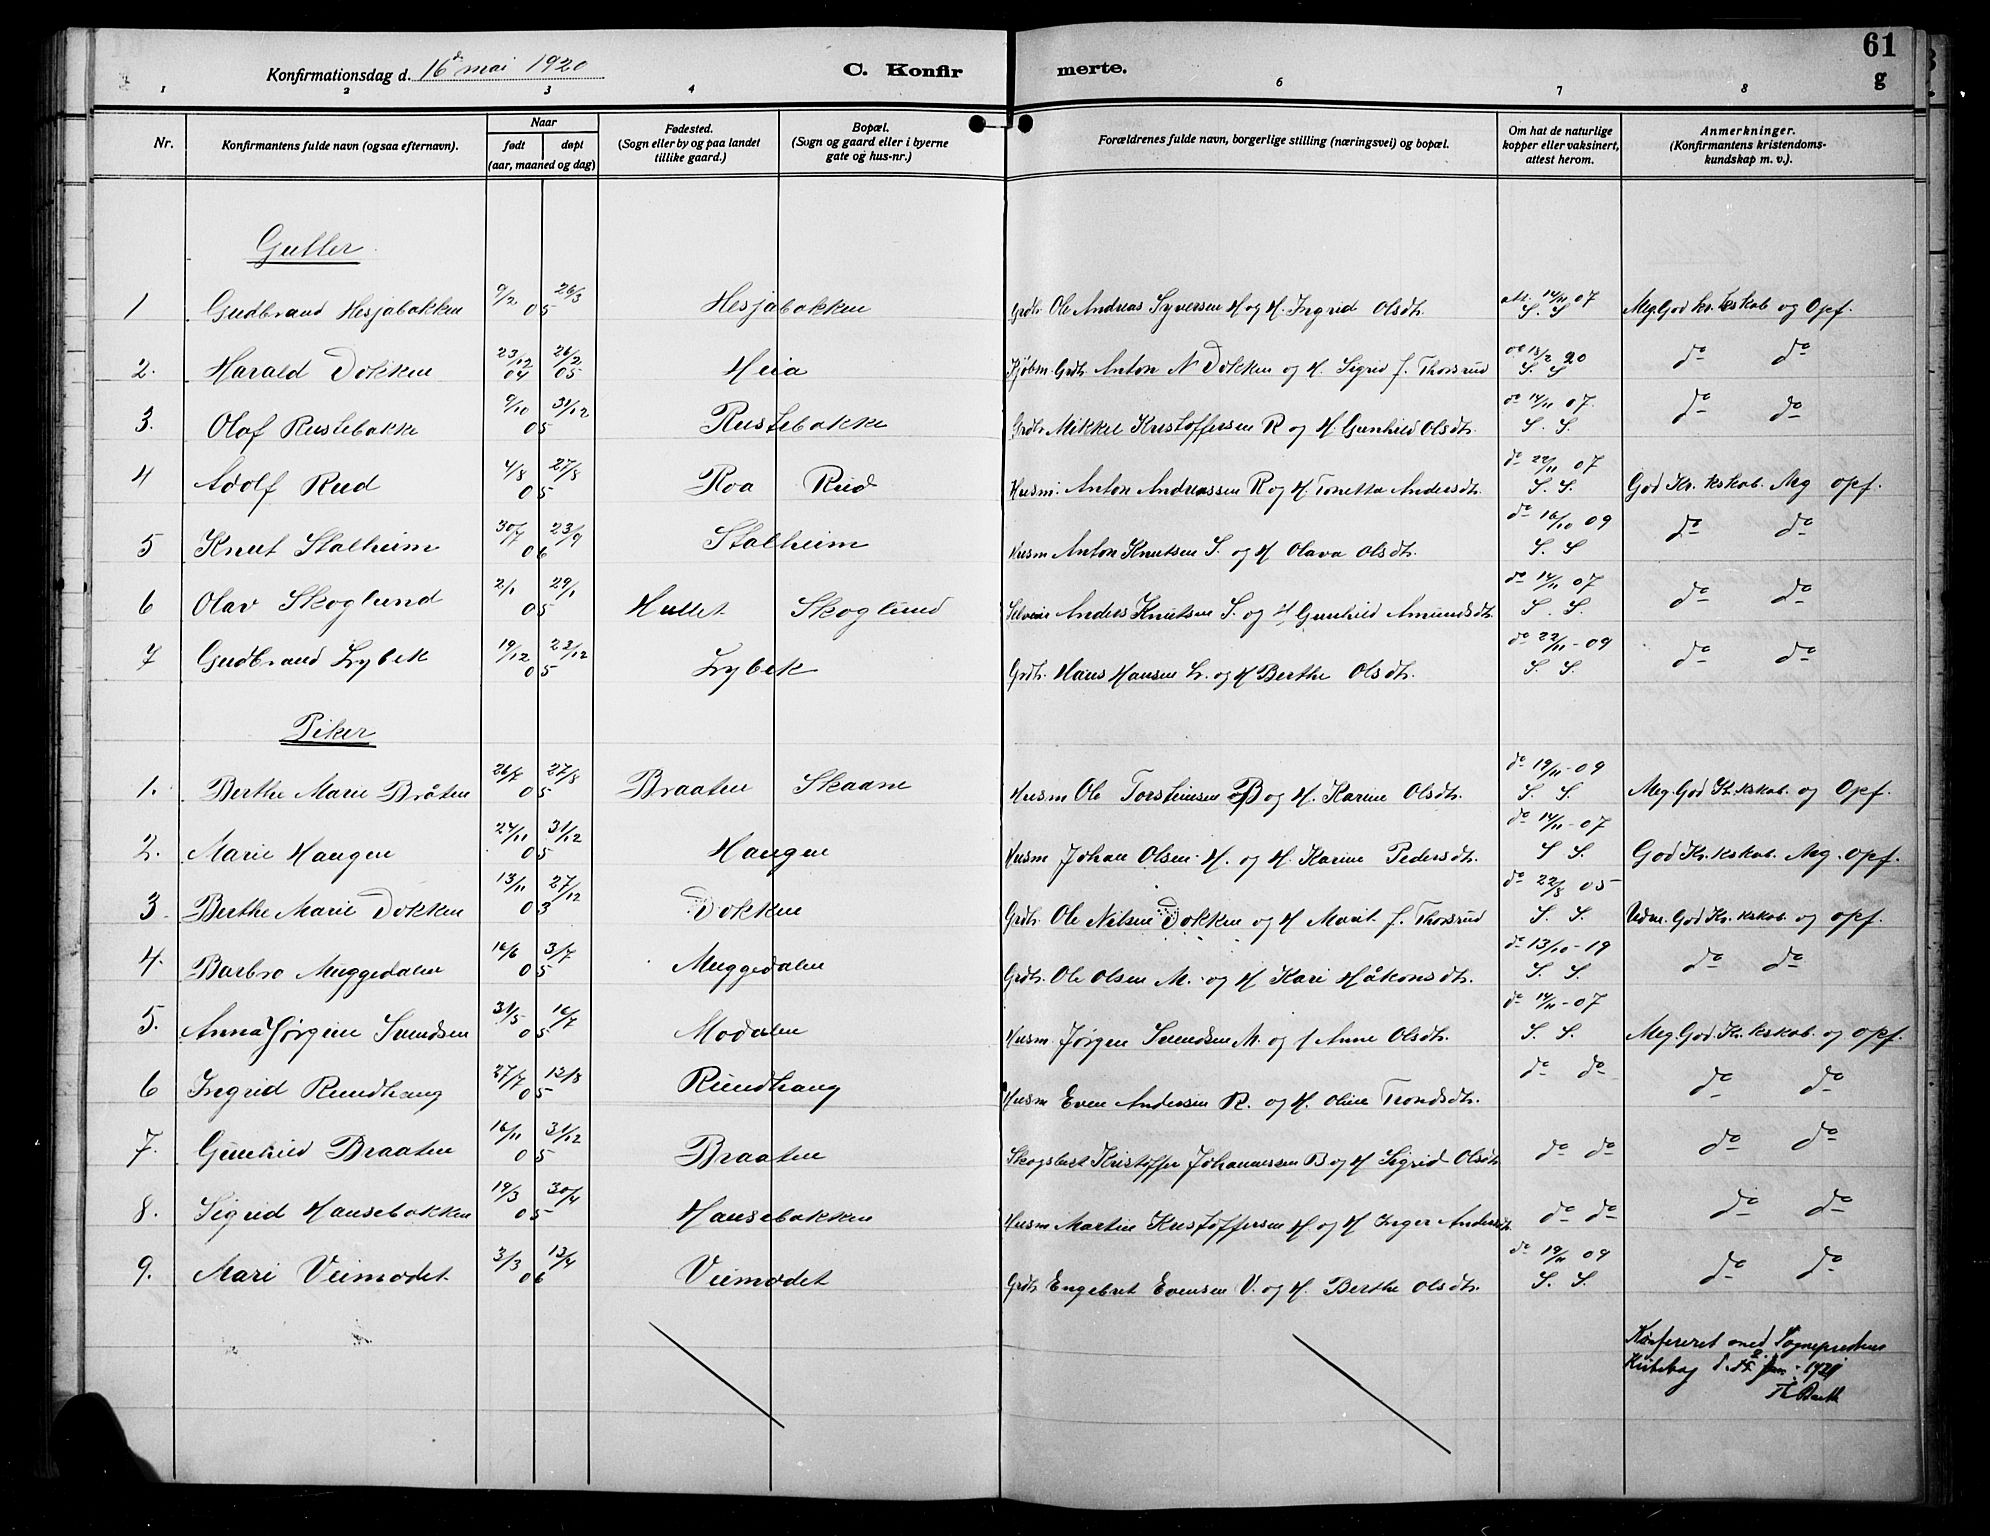 61
g
Konfirmationsdag d. 16de mai 1920 C. Konfirmerte.
1 2 3 4 6 7 8
Nr. Konfirmantens fulde navn (ogsaa efternavn). Naar født døpt (aar, maaned og dag) Fødested. (Sogn eller by og paa landet tillike gaard.) Bopæl. (Sogn og gaard eller i byerne gate og hus-nr.) Forældrenes fulde navn, borgerlige stilling (næringsvei) og bopæl. Om hat de naturlige kopper eller vaksinert, attest herom. Anmerkninger. (Konfirmantens kristendomskundskap m. v.).
Gutter
1 Gudbrand Hesjabakken 9/2 26/3 05 Hesjabakken Grdbr. Ole Andreas Syversen H og H. Ingrid Olsdtr. att. 14/11 07 S. S Meg. God kr. kskab og Opf.
2. Harald Dokken 23/12 04 26/2 05 Heia Kjøbm. Grdbr. Anton N Dokken og H. Sigrid f. Thorsrud do 18/2 20 S. S do do
3. Olaf Rustebakke 9/10 31/12 05 Rustebakke Grdbr Mikkel Kristoffersen R og H. Gunhild Olsdtr. do 14/11 07. S. S. do do
4 Adolf Rud 4/8 27/8 05 Roa Rud Husm. Anton Andreassen R og H. Tonetta Andersdtr. do 22/11 07 S. S. God Kr. kskab. Meg opf.
5 Knut Stalheim 30/7 23/9 06 Stalheim Husm Anton Knutsen S. og H Olava Olsdtr. do 16/10 09 S. S do do
6 Olav Skoglund 2/1 29/1 05 Hullet Skoglund Selveier Anders Knutsen S. og H Gunhild Amundsdtr. do 14/11 07 S. S. do do
7 Gudbrand Lybek 19/12 22/12 05 Lybek Grdbr. Hans Hansen L. og H Berthe Olsdtr. do 22/11-09 S. S. do do
Piker
1. Berthe Marie Bråten 26/7 27/8 05 Braaten Skaane Husm Ole Torsteinsen B og H. Karine Olsdtr. do 19/11-09 S. S. Meg. God Kr. kskab. og Opf.
2. Marie Haugen 24/11 31/12 05 Haugen Husm Johan Olsen H. og H. Karine Pedersdtr. do 14/11-07 S S. God Kr. kskab. Meg. opf.
3. Berthe Marie Dokken 13/11 27/12 03 Dokken Grdbr. Ole Nilsen Dokken og H Marit f. Thorsrud do 22/8 05 S. S. Udm. God Kr. kskab. og opf.
4. Barbro Muggedalen 16/6 3/7 05 Muggedalen Grdbr. Ole Olsen M. og H Kari Håkonsdtr. do 13/10-19 S. S. do do
5. Anna Jørgine Svendsen 31/5 16/7 05 Modalen Husm. Jørgen Svendsen M. og f Anne Olsdtr. do 14/11-07 S. S. Meg. God Kr. kskab. og opf.
6 Ingrid Rundhaug 27/7 12/8 05 Rundhaug Husm Even Andersen R. og H. Oline Trondsdtr. do do do do
7. Gunhild Braaten 16/11 31/12 05 Braaten Skogsbest Kristoffer Johannessen B og H Sigrid Olsdtr do do do do
8. Sigrid Hansebakken 19/3 30/4 05 Hansebakken Husm Martin Kristoffersen H og H Inger Andersdtr. do do do do
9. Mari Veimodet 3/3 13/4 06 Veimodet Grdbr Engebret Evensen V. og H. Berthe Olsdtr. do 19/11 09 S. S. do do
Konfereret med Sogneprestens
Kirkebog d. 2 Jan. 1921
Th Barth